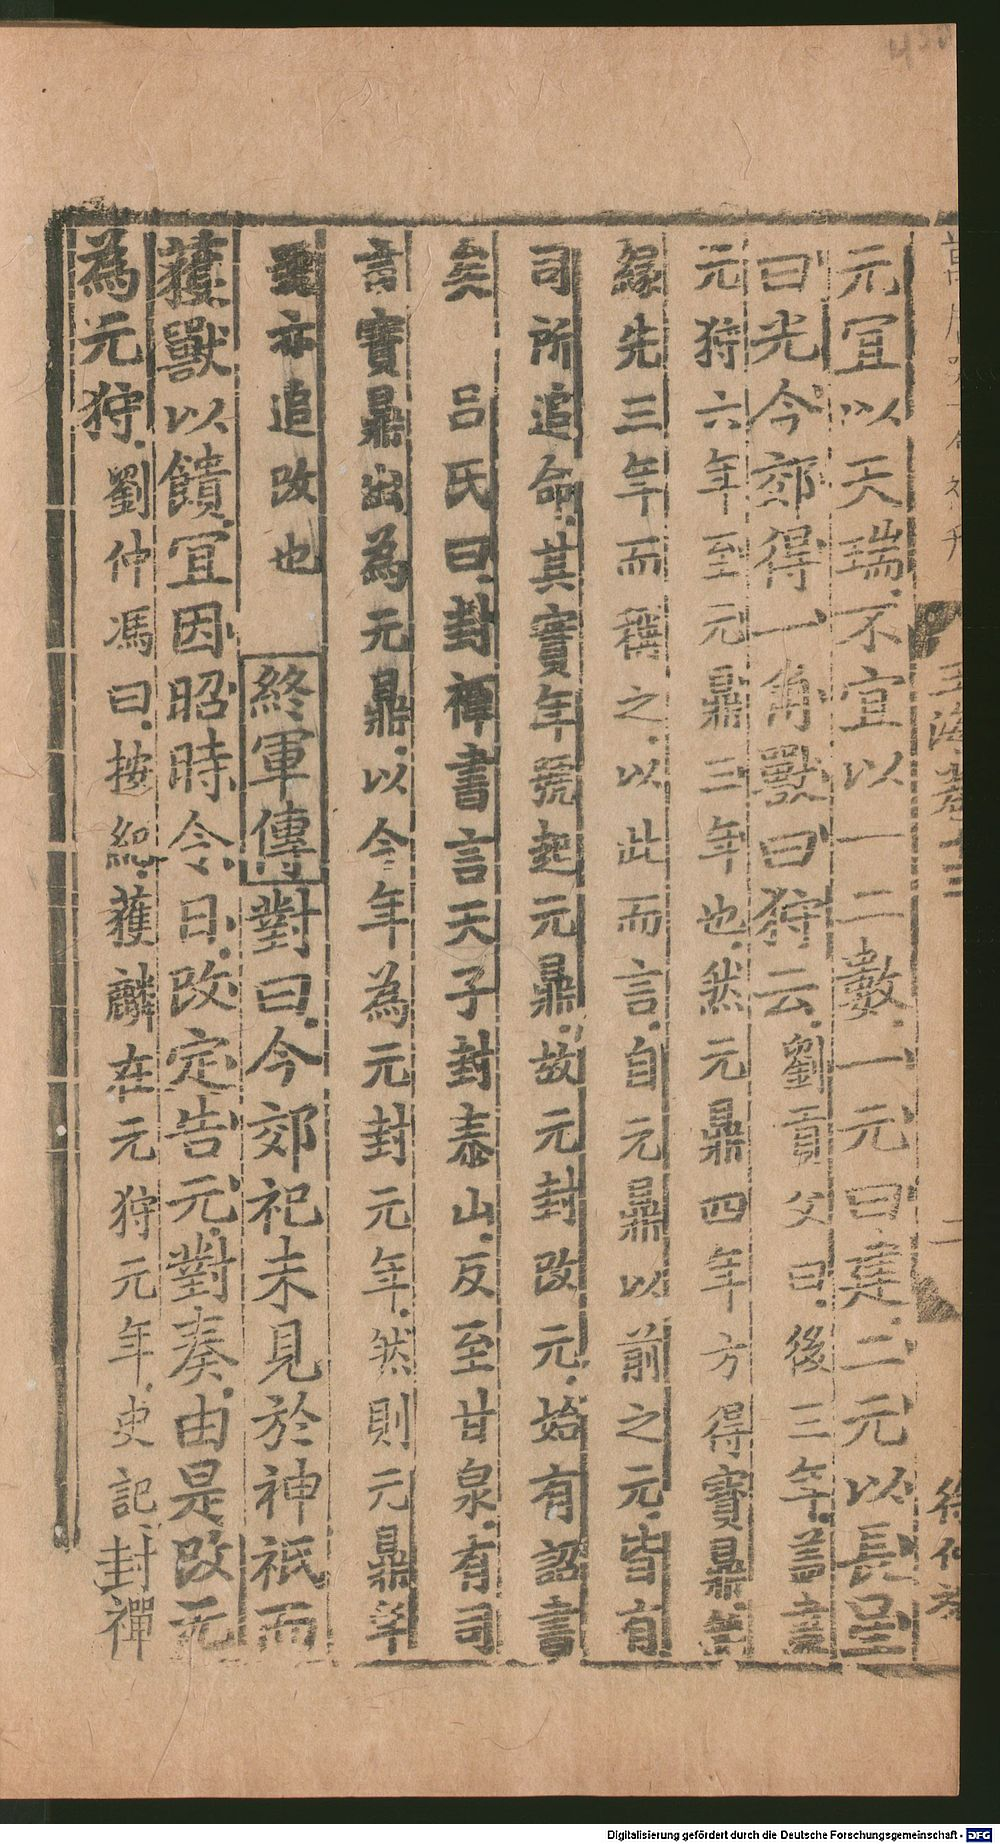 元宜以天瑞不宜以一二數一元曰建二元以長星
曰光今郊得一角獸曰狩云劉貢父曰後三年盖盡
元狩六年至元鼎三年也然元鼎四年方得寶鼎無
緣先三年而稱之以此而言自元鼎以前之元皆有
司所追命其實年號起元鼎故元封改元始有詔書
矣　呂氏曰封禪書言天子封泰山反至甘泉有司
言寶鼎出為元鼎以今年為元封元年然則元鼎年
號亦追改也　終軍傳對曰今郊祀未見於神祇而
獲獸以饋宜因昭時令日改定告元對奏由是改元
為元狩劉仲馮曰按紀獲麟在元狩元年史記封禪
玉海卷十三
二
Digitalisierung gefördert durch die Deutsche Forschungsgemeinschaft - DFG